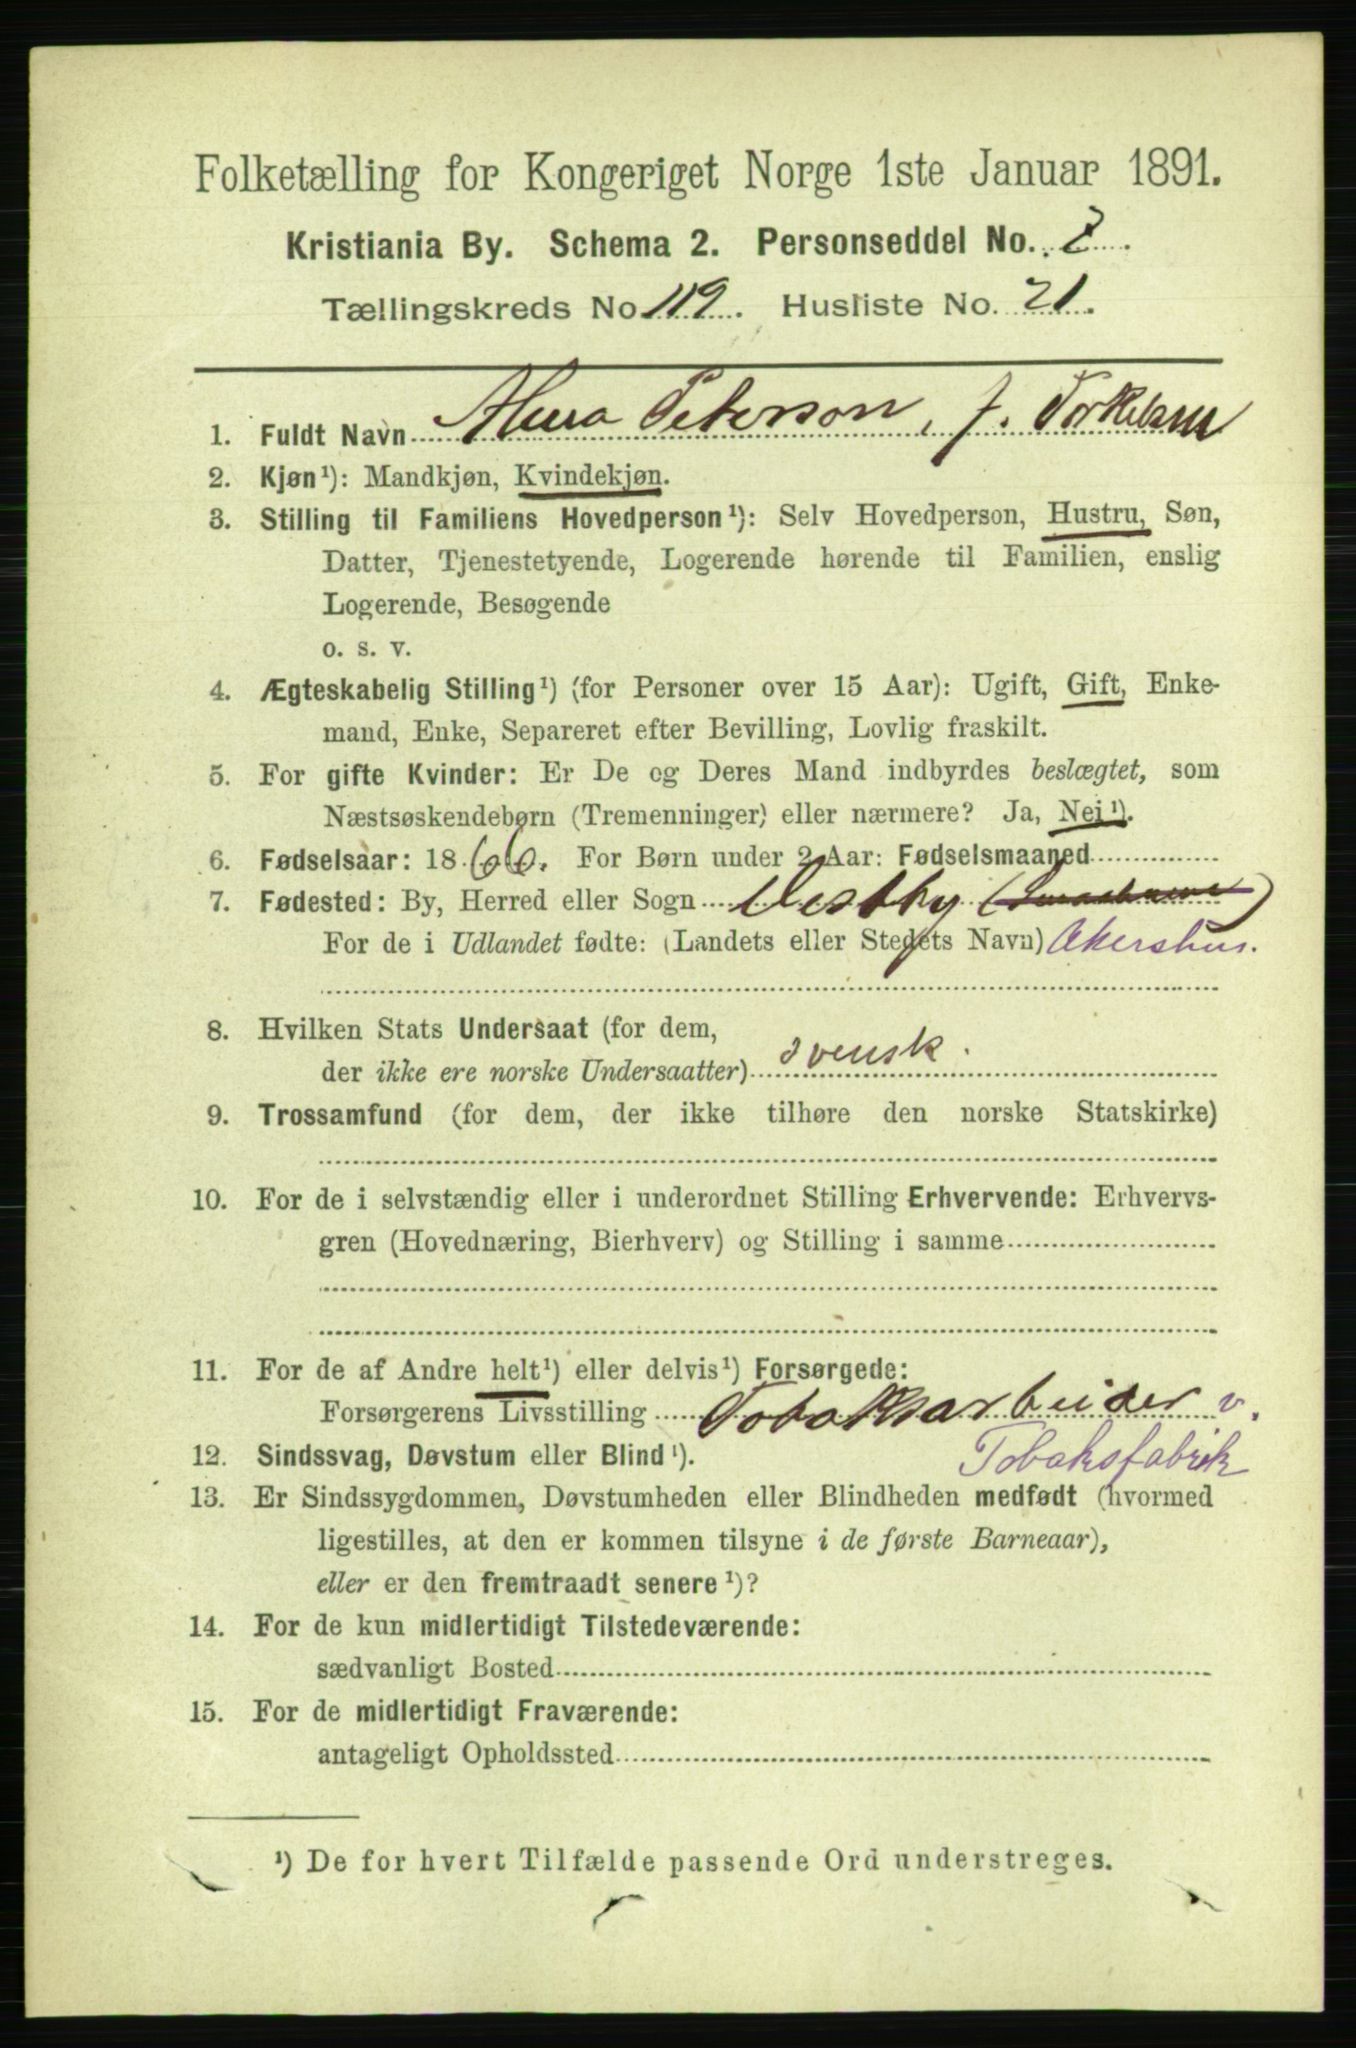 Folketælling for Kongeriget Norge 1ste Januar 1891.
Kristiania By. Schema 2. Personseddel No. 2.
Tællingskreds No 119. Husliste No. 21.
1. Fuldt Navn Peterson, f. Torkelsen
2. Kjøn¹): Mandkjøn, Kvindekjøn.
3. Stilling til Familiens Hovedperson¹): Selv Hovedperson, Hustru, Søn,
Datter, Tjenestetyende, Logerende hørende til Familien, enslig
Logerende, Besøgende
o. s. v.
4. Ægteskabelig Stilling¹) (for Personer over 15 Aar): Ugift, Gift, Enke-
mand, Enke, Separeret efter Bevilling, Lovlig fraskilt.
5. For gifte Kvinder: Er De og Deres Mand indbyrdes beslægtet, som
Næstsøskendebørn (Tremenninger) eller nærmere? Ja, Nei¹).
6. Fødselsaar: 1866. For Børn under 2 Aar: Fødselsmaaned
7. Fødested: By, Herred eller Sogn Vestby
For de i Udlandet fødte: (Landets eller Stedets Navn) Akershus.
8. Hvilken Stats Undersaat (for dem,
der ikke ere norske Undersaatter) svensk.
9. Trossamfund (for dem, der ikke tilhøre den norske Statskirke)
10. For de i selvstændig eller i underordnet Stilling Erhvervende: Erhvervs-
gren (Hovednæring, Bierhverv) og Stilling i samme
11. For de af Andre helt¹) eller delvis¹) Forsørgede:
Forsørgerens Livsstilling Tobaksarbeider v.
Tobaksfabrik
12. Sindssvag, Døvstum eller Blind¹).
13. Er Sindssygdommen, Døvstumheden eller Blindheden medfødt (hvormed
ligestilles, at den er kommen tilsyne i de første Barneaar),
eller er den fremtraadt senere¹)?
14. For de kun midlertidigt Tilstedeværende:
sædvanligt Bosted
15. For de midlertidigt Fraværende:
antageligt Opholdssted
¹) De for hvert Tilfælde passende Ord understreges.